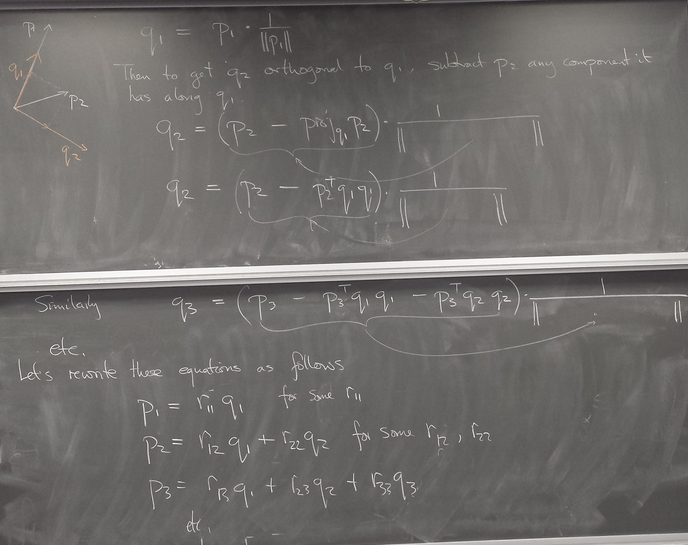 p₁
q₁
p₂
q₂
q₁ = p₁ · 1/‖p₁‖
Then to get q₂ orthogonal to q₁, subtract p₂ any component it
has along q₁.
q₂ = (p₂ − proj_q₁ p₂) · 1/‖ ‖
q₂ = (p₂ − p₂ᵀq₁q₁) · 1/‖ ‖
Similarly q₃ = (p₃ − p₃ᵀq₁q₁ − p₃ᵀq₂q₂) · 1/‖ ‖
etc.
Let's rewrite these equations as follows
p₁ = r₁₁q₁ for some r₁₁
p₂ = r₁₂q₁ + r₂₂q₂ for some r₁₂, r₂₂
p₃ = r₁₃q₁ + r₂₃q₂ + r₃₃q₃
etc.